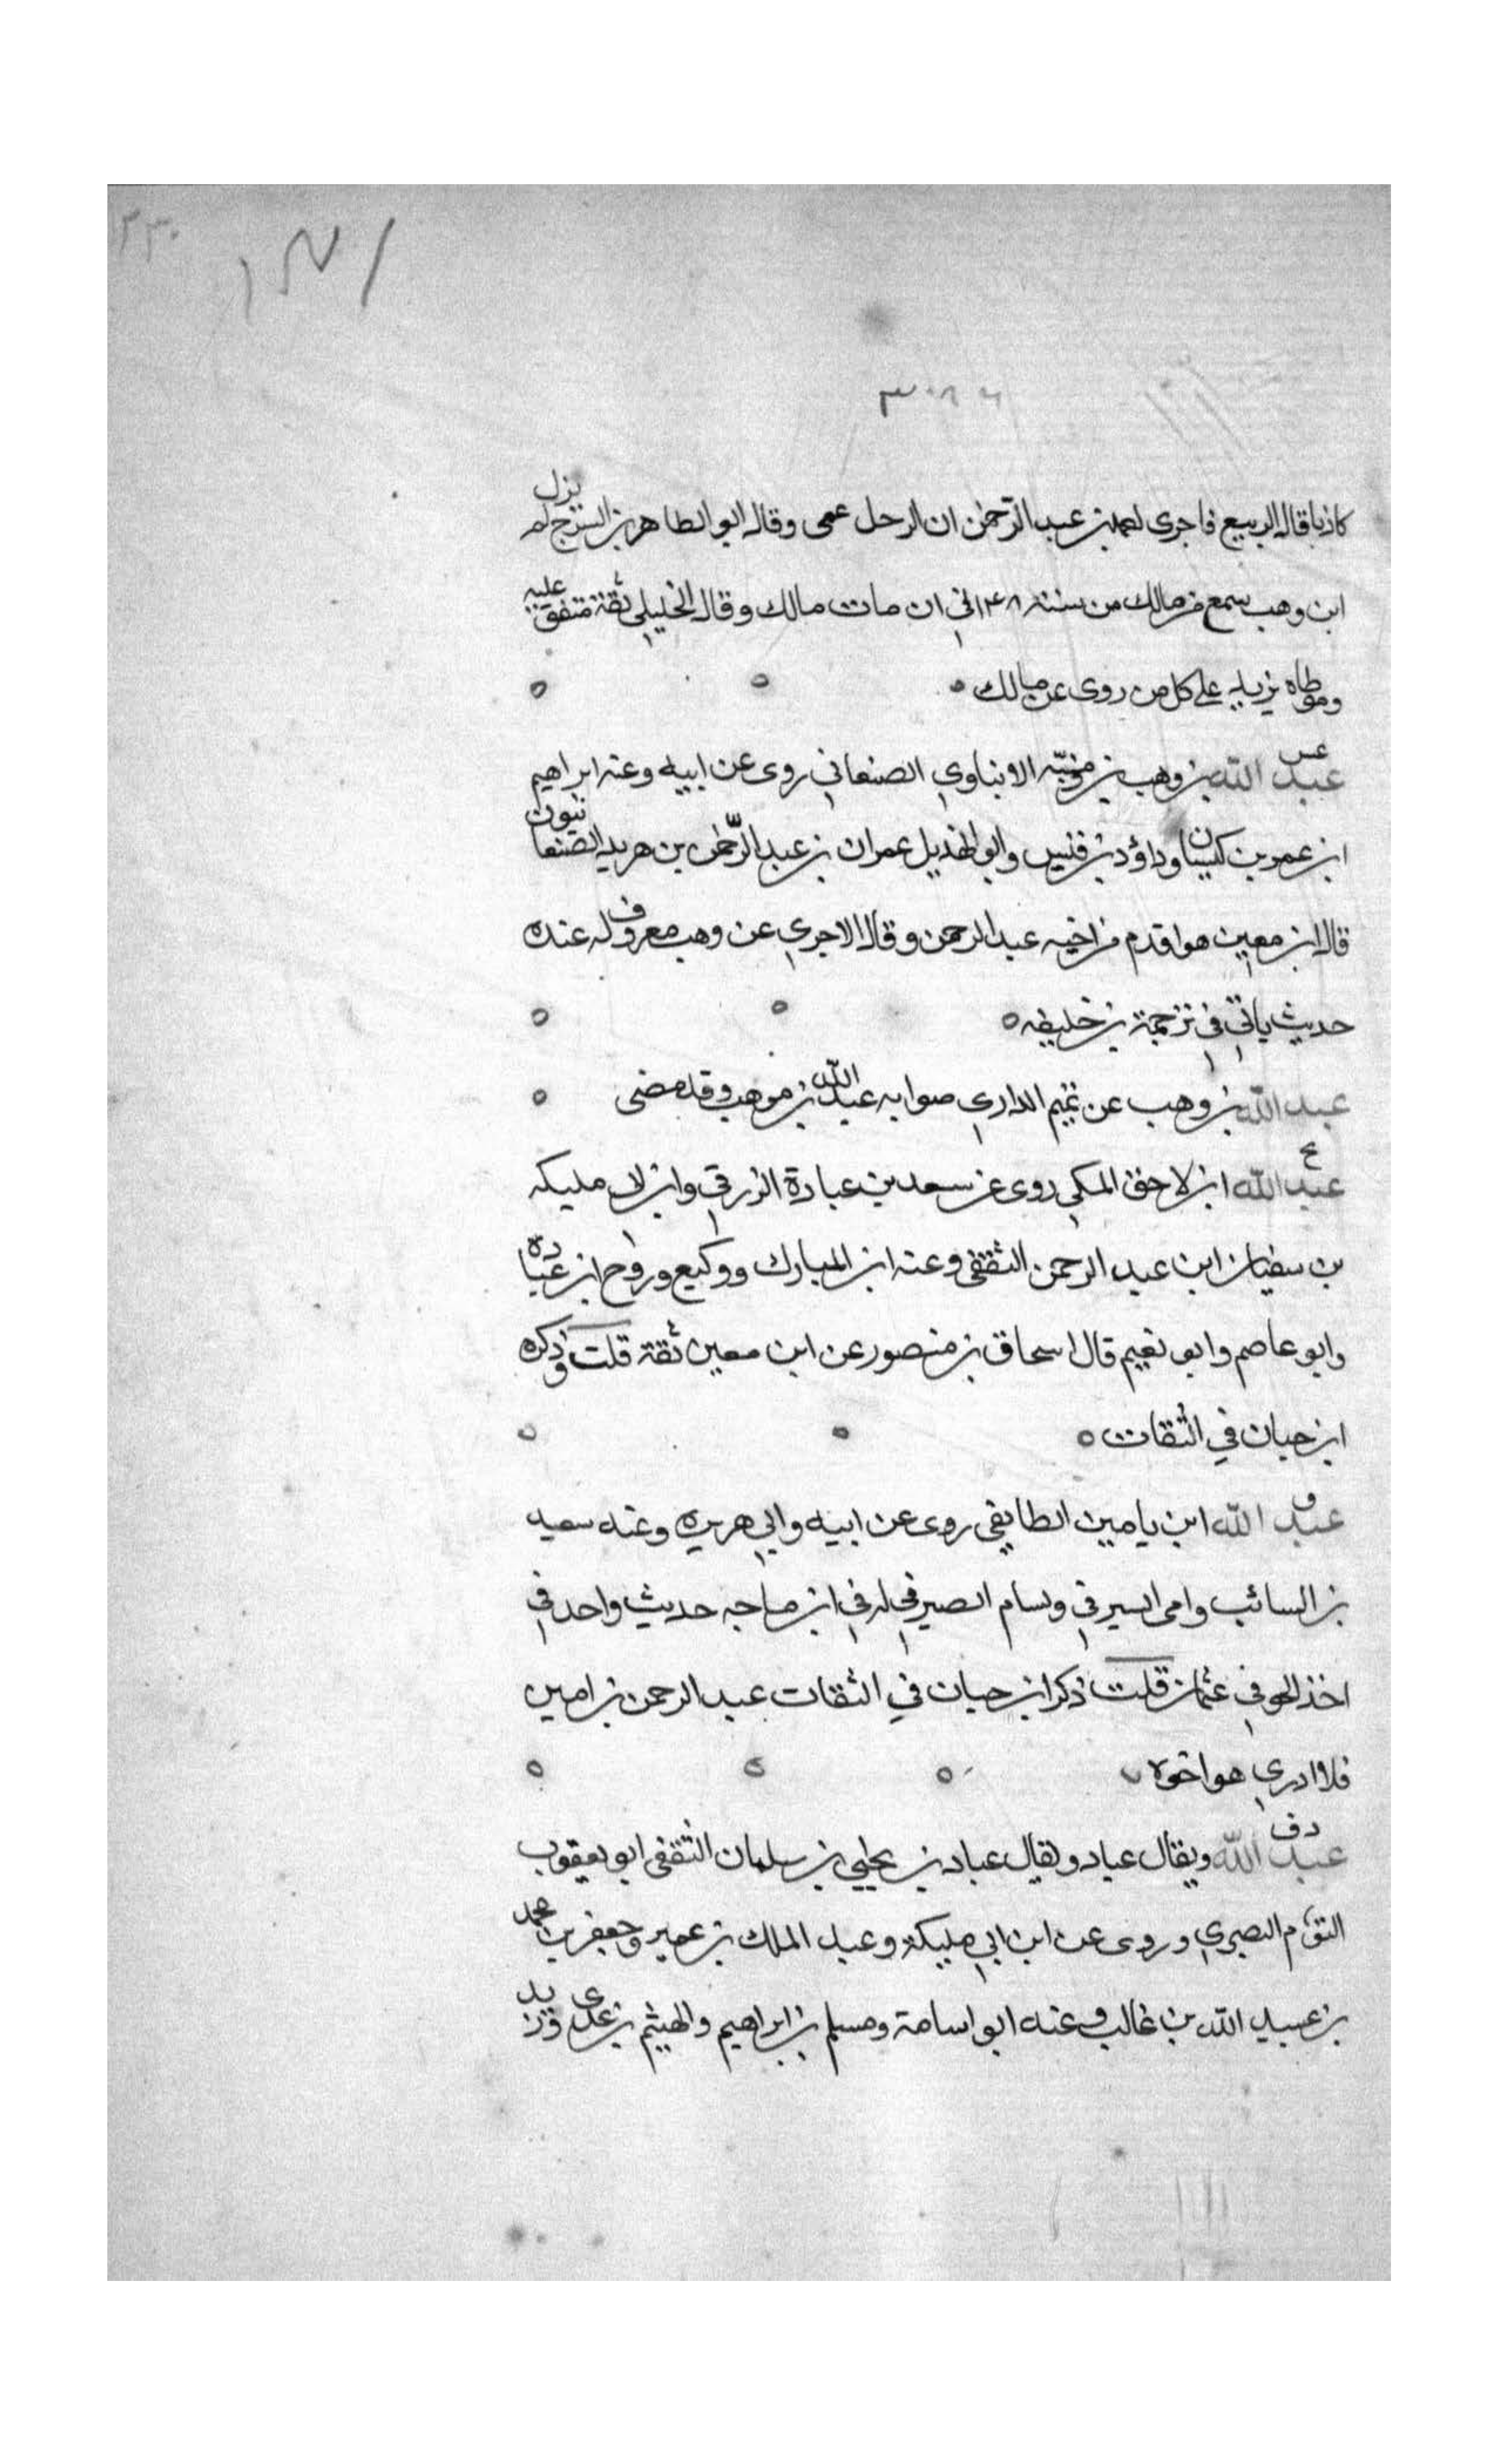 ٢٣٠
٣٠٨٦
كاذبا قال الربيع فاجرى لعبد بن عبد الرحمن ان الرجل عمى وقال ابو الطاهر بن السرح لم يزل
ابن وهب سمع من مالك من سنة ١٤٨ الى ان مات مالك وقال الخليلي ثقة متفق عليه
وموطاه يزيد على كل من روى عن مالك
عس
عبد الله بن وهب بن منبه الابناوي الصنعاني روى عن ابيه وعنه ابراهيم
ابن عمر بن كيسان وداؤد بن قيس وابو الهذيل عمران بن عبد الرحمن بن هربد الصنعانيون
قال ابن معين هو اقدم من اخيه عبد الرحمن وقال الاجري عن وهب معروف له عنده
حديث ياتي في ترجمة بن خليفه
عبد الله بن وهب عن تميم الداري صوابه عبد الله بن موهب وقد مضى
ع
عبد الله ابن لاحق المكي روى عن سعد بن عبادة الزرقي وابن لابي مليكه
بن سفيان ابن عبد الرحمن الثقفي وعنه ابن المبارك ووكيع وروح ابن عبادة
وابو عاصم وابو نعيم قال اسحاق بن منصور عن ابن معين ثقة قلت وذكره
ابن حبان في الثقات
ق
عبد الله ابن يامين الطايفي روى عن ابيه وابي هريره وعنه سعيد
بن السائب وامى السيرفي وبسام الصيرفي له في ابن ماجه حديث واحد في
اخذ لهو في عثمان قلت ذكر ابن حبان في الثقات عبد الرحمن بن امين
فلا ادري هو اخوه
د ق
عبد الله ويقال عباد ويقال عباد بن يحيي بن سلمان الثقفي ابو يعقوب
التوءم البصري وروى عن ابن ابي مليكة وعبد الملك بن عمير وجعفر بن محمد
بن عبيد الله بن غالب وعنه ابو اسامة ومسلم بن ابراهيم والهيثم بن عدى وزيد